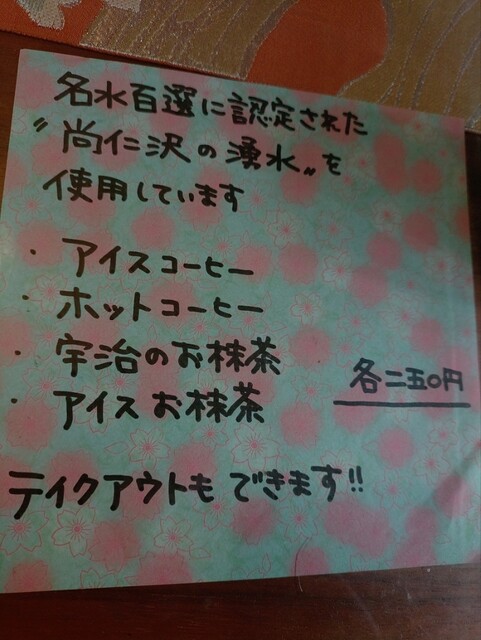 名水百選に認定された
〝尚仁沢の湧水〟を
使用しています
・アイスコーヒー
・ホットコーヒー
・宇治のお抹茶
・アイスお抹茶
各二五〇円
テイクアウトもできます!!